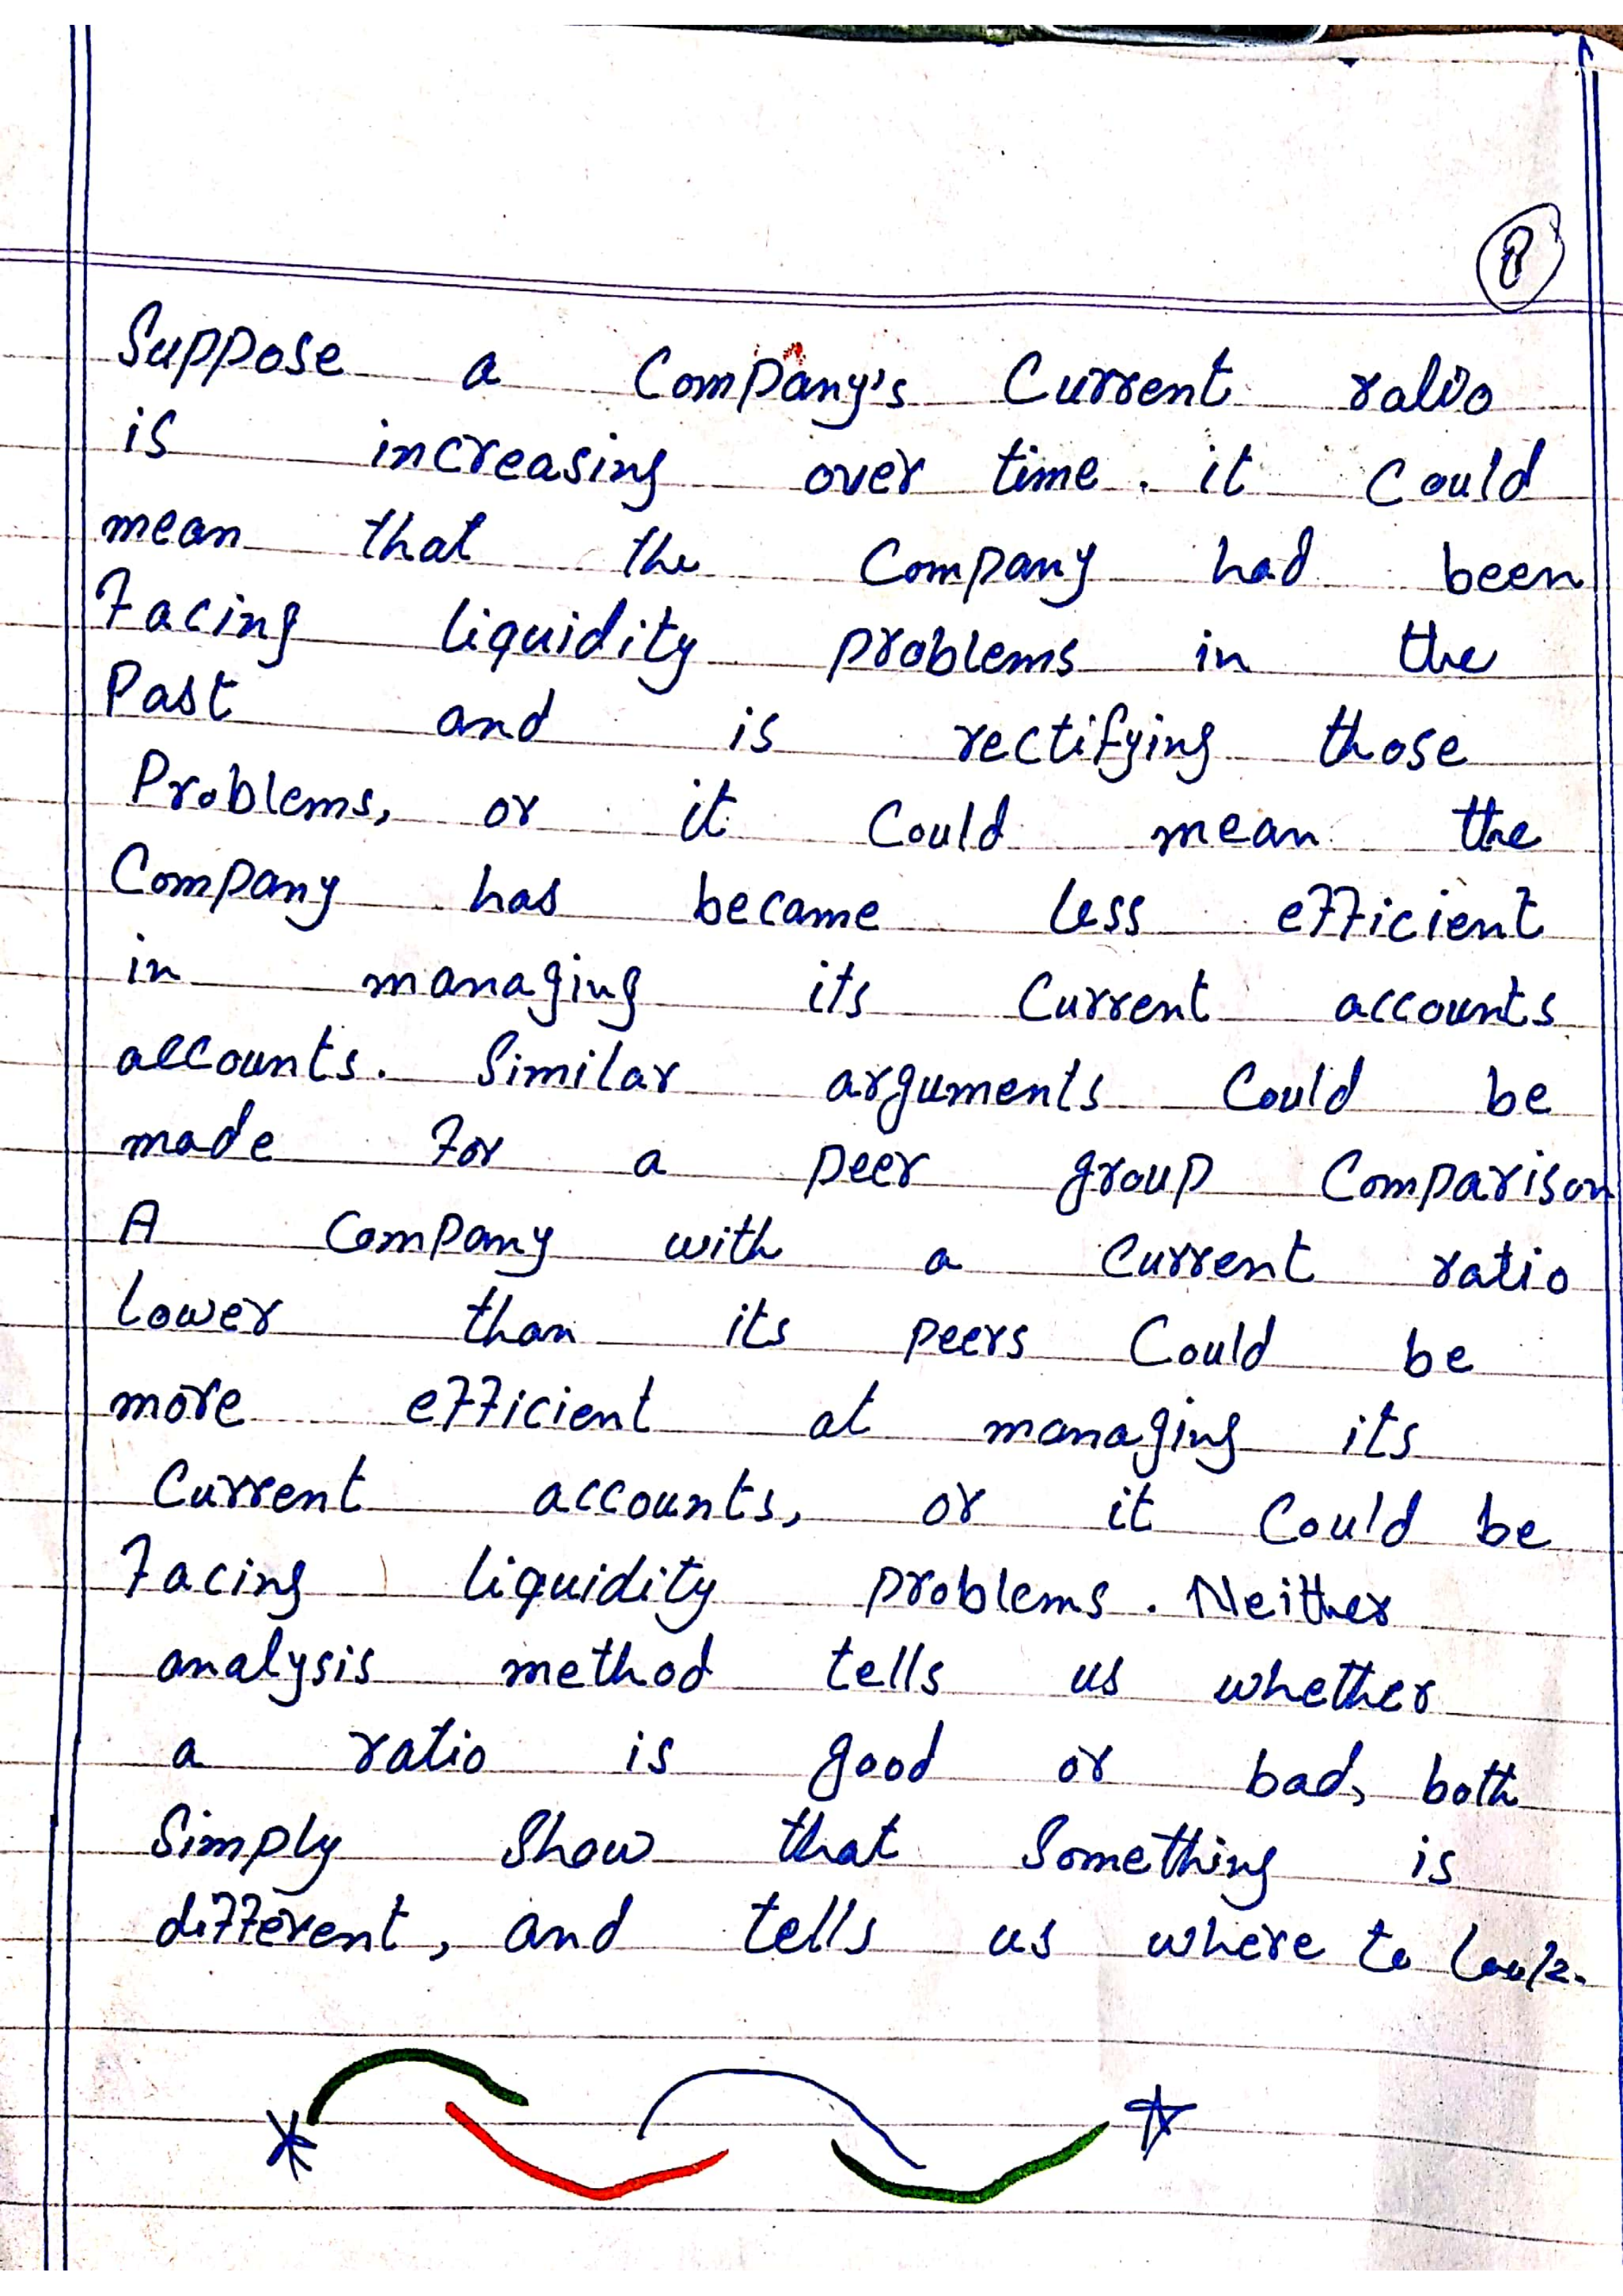 8
Suppose a Company's Current ratio
is increasing over time. it Could
mean that the Company had been
Facing liquidity problems in the
Past and is rectifying those
Problems, or it Could mean the
Company has became less efficient
in managing its Current accounts
accounts. Similar arguments Could be
made For a peer group Comparison
A Company with a Current ratio
lower than its peers Could be
more efficient at managing its
Current accounts, or it Could be
Facing liquidity problems. Neither
analysis method tells us whether
a ratio is good or bad, both
Simply Show that Something is
different, and tells us where to look.